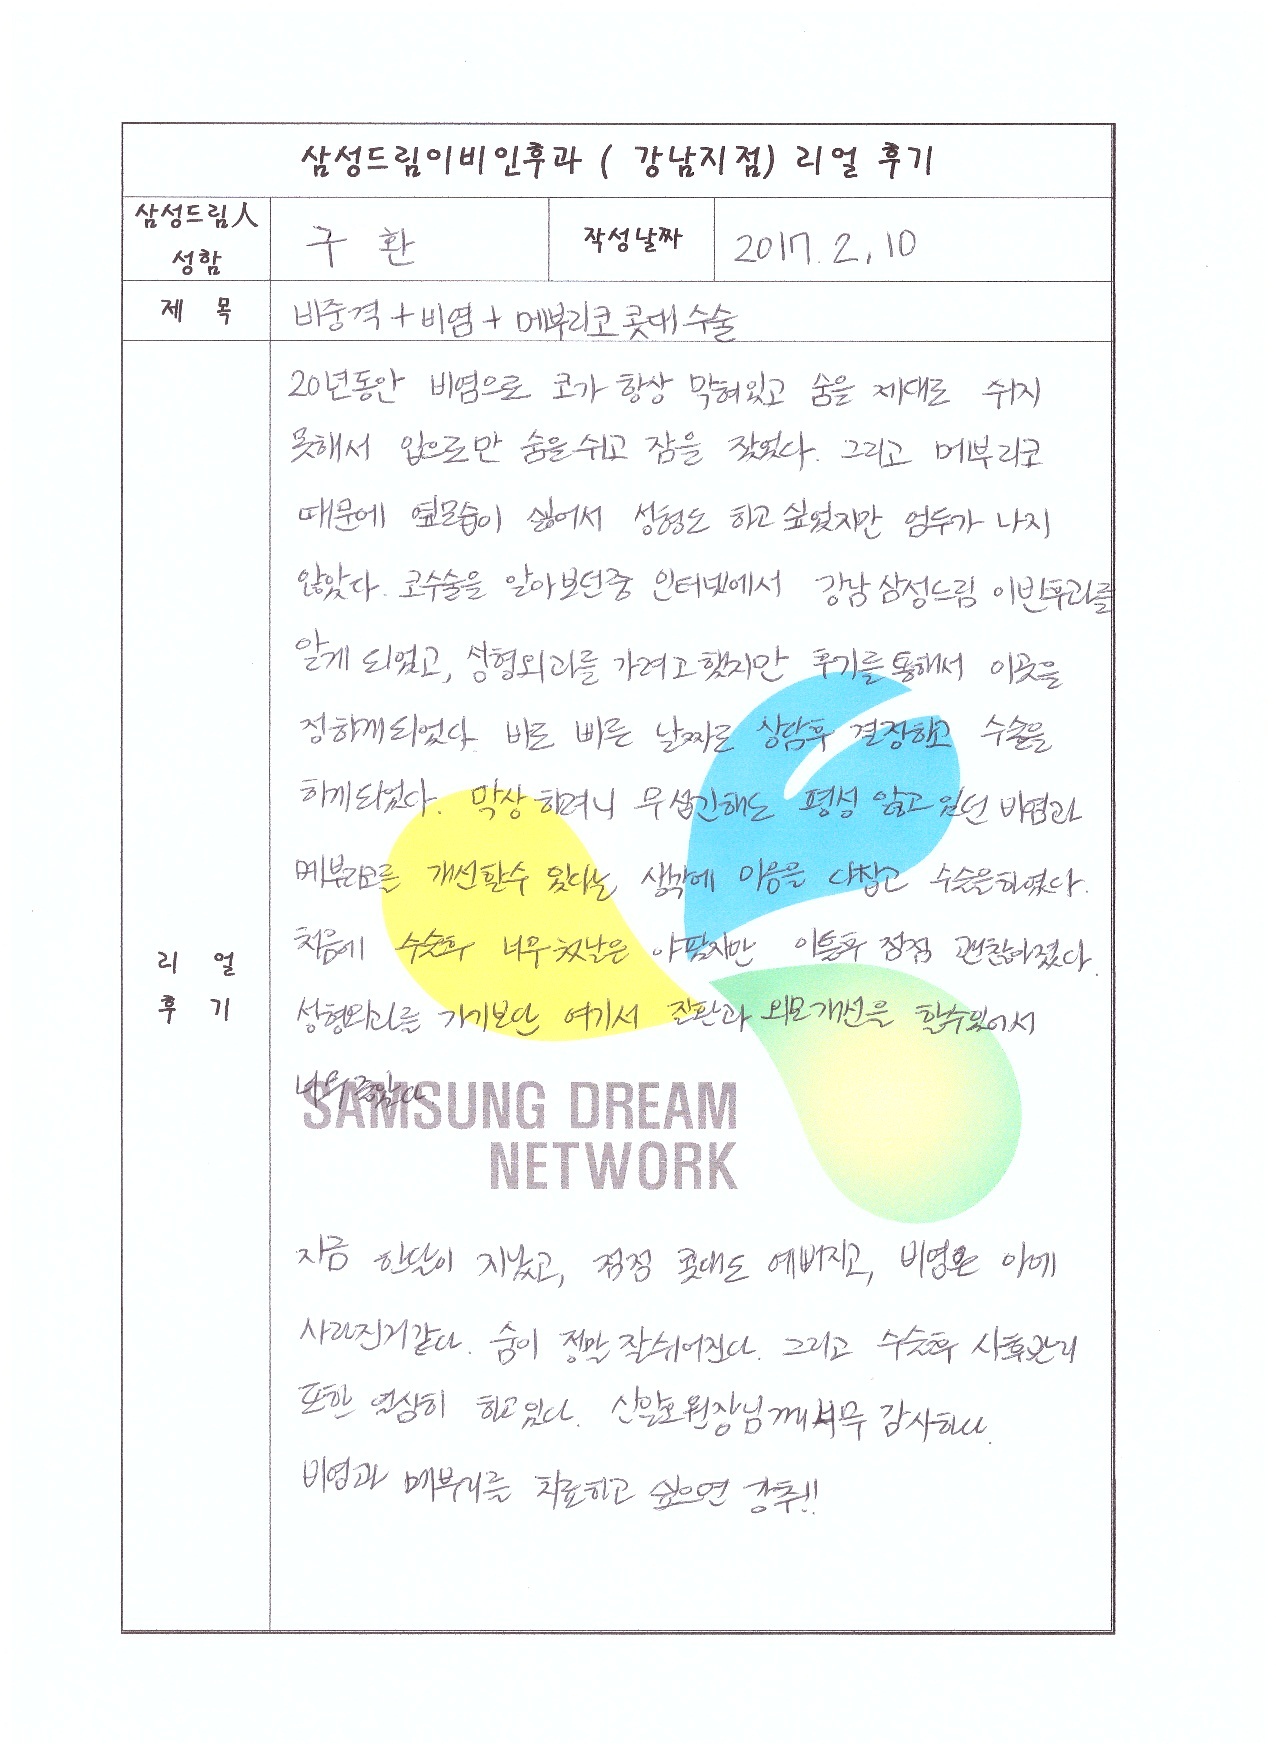 삼성드림이비인후과 ( 강남지점) 리얼 후기
삼성드림人 성함
구 환
작성날짜
2017. 2. 10
제 목
비중격 + 비염 + 메부리코 콧대 수술
리 얼 후 기
20년동안 비염으로 코가 항상 막혀있고 숨을 제대로 쉬지
못해서 입으로만 숨을쉬고 잠을 잤었다. 그리고 메부리코
때문에 옆모습이 싫어서 성형도 하고 싶었지만 엄두가 나지
않았다. 코수술을 알아보던중 인터넷에서 강남 삼성드림 이빈후과를
알게 되었고, 성형외과를 가려고 했지만 후기를 통해서 이곳을
정하게되었다. 바로 빠른 날짜로 상담후 결정하고 수술을
하게되었다. 막상 하려니 무섭긴해도 평성 앓고 있던 비염과
메부리코를 개선할수 있다는 생각에 마음을 다잡고 수술을하였다.
처음에 수술후 너무 첫날은 아팠지만 이틀후 점점 괜찮아졌다.
성형외과를 가기보단 여기서 질환과 외모개선을 할수있어서
너무 좋았다.
SAMSUNG DREAM
NETWORK
지금 한달이 지났고, 점점 콧대도 예뻐지고, 비염은 아예
사라진거같다. 숨이 정말 잘쉬어진다. 그리고 수술후 사후관리
또한 열심히 하고있다. 원장님께 너무 감사하다.
비염과 메부리를 치료하고 싶으면 강추!!